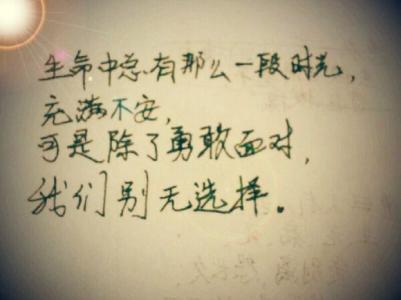 生命中总有那么一段时光，
充满不安，
可是除了勇敢面对，
我们别无选择。